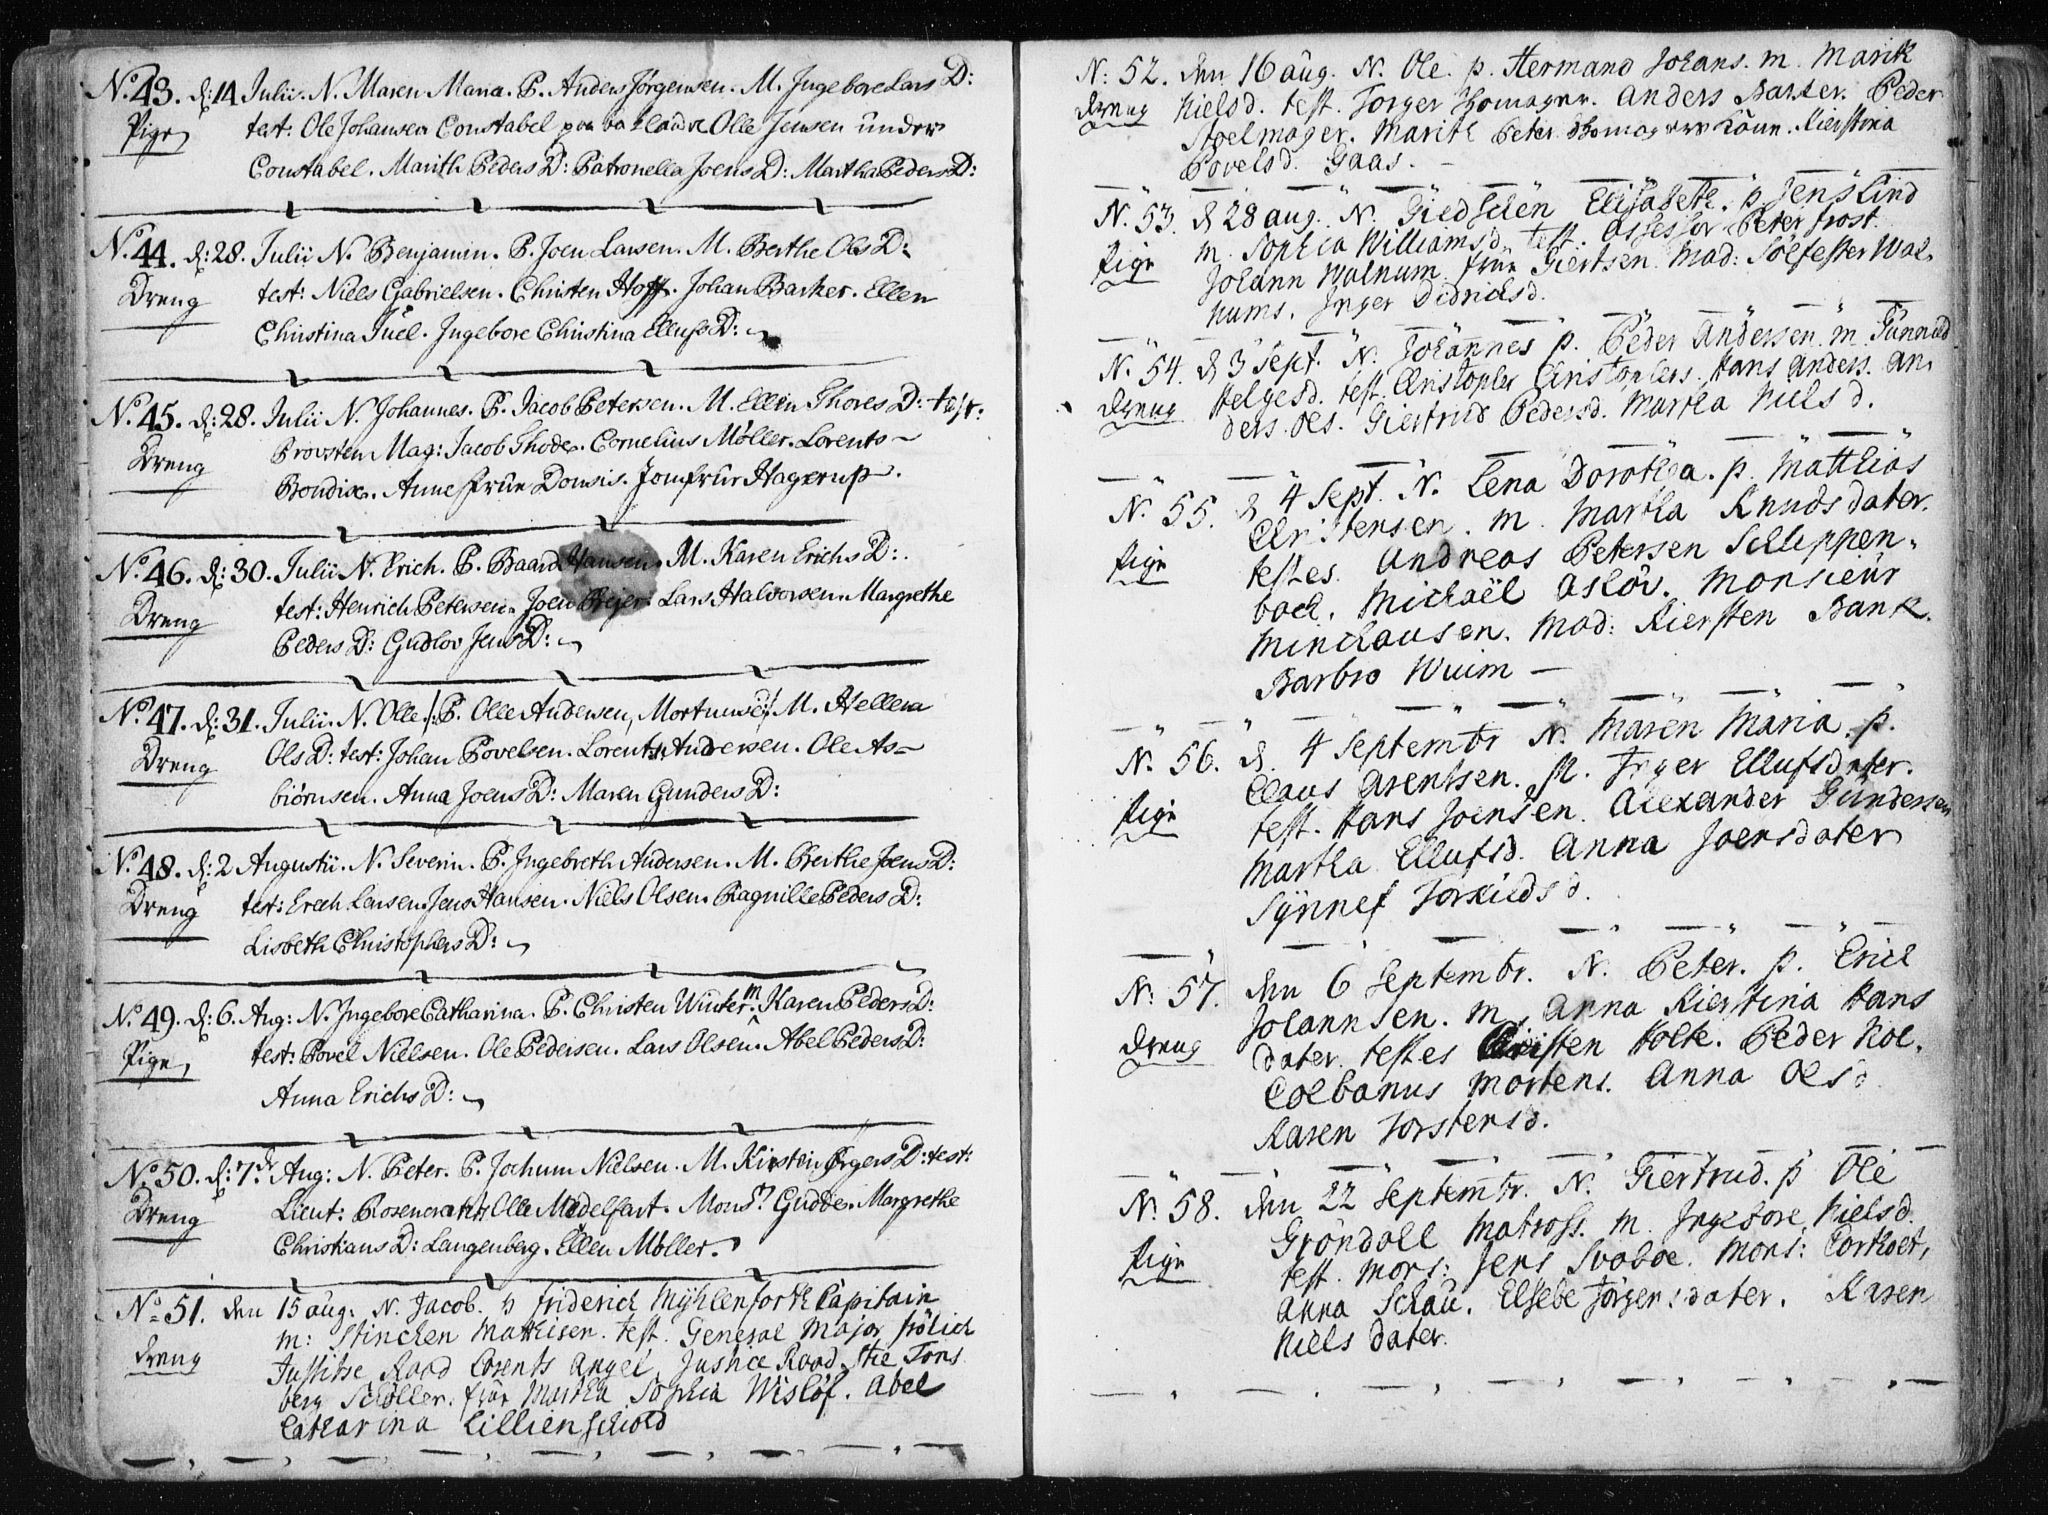 No. 43. d: 14 Julii. N. Maren Maria. P. Anders Jörgensen. M. Ingebore Lars D:
Pige test: Ole Johansen Constabel Olle Jensen under
Constabel. Marith Peders D: Patronella Joens D: Martha Peders D:
No. 44. d: 28. Julii N. Benjamin. P. Joen Larsen. M. Berthe Ols D:
Dreng test: Niels Gabrielsen. Christen Hoff. Johan Barker. Ellen
Christina Juel. Ingebore Christina Ellufs D:
No. 45. d: 28. Julii N. Johannes. P. Jacob Petersen. M. Ellen Thores D: test.
Dreng Provsten Mag: Jacob Thode. Cornelius Møller. Lorents
Bondix. Anne frue Domsis. Jomfrue Hagerup.
No. 46. d: 30. Julii N. Erich. P. Baard Hansen. M. Karen Erichs D:
Dreng test: Henrich Petersen. Joen Beyer. Lars Halvorsen. Margrethe
Peders D: Gudlov Jens D:
No. 47. d: 31. Julii. N. Olle /: P. Olle Andersen, M. Hellena
Dreng Ols D: test: Johan Povelsen. Lorents Andersen. Ole As-
biörnsen. Anna Joens D: Maren Gunders D:
No. 48. d: 2 Augustii. N. Severin. P. Ingebreth Andersen. M. Berthe Joens D:
Dreng test: Erich Larsen. Jens Hansen. Niels Olsen. Ragnille Peders D:
Lisbeth Christophers D:
No. 49. d: 6. Aug: N. Ingebore Catharina. P. Christen Winter. M Karen Peders D:
Pige, test: Povel Nielsen. Ole Pedersen. Lars Olsen. Abel Peders D:
Anna Erichs D:
No. 50. d: 7de Aug: N. Peter. P. Jochum Nielsen. M. Kirsten Örgers D: test:
Dreng Lieut: Rosencrantz Olle Medelfart. Monsr. Gudde. Margrethe
Christians D: Langenberg. Ellen Møller.
No. 51. den 15 aug: N. Jacob. p friderich Mÿhlenforth Capitain
m: Stinchen Mathisen. test. General Major frölich
dreng Justitse Raad Lorents Angel, Justice Raad Stie Tons
berg Schøller. frue Martha Sophia Wislöf. Abel
Catharina Lillienschiold
N: 52. den 16 aug. N. Ole. p. Hermand Johans. m. Marith
dreng Nielsd. test. Torger Anders Barker. Peder
Stoelmager. Marith Peter Kone. Kierstina
Povelsd. Gaas.
N. 53. d 28 aug. N. Giedschen Elisabeth. p Jens Lind
Pige m. Sophia Williamsd. test. assessor Peter frost.
Johann Walnum. frue Giertsen. Mad: Sölfester Wal-
nums. Inger Didrichsd.
N. 54. d 3 Sept. N. Johannes p. Peder Andersen. m. Gunnild
dreng Helgesd. test. Christopher Christophers. Hans Anders. An-
ders Ols. Giertrud Pedersd. Martha Nielsd.
N. 55. d 4 Sept. N. Lena Dorothea. p. Matthias
Christensen. m. Martha Knudsdater.
Pige testes. Andreas Petersen Schlippen-
bach. Michaël Aslöv. Monsieur
Minchausen. Mad: Kiersten Bank.
Barbro Wuim
N. 56. d. 4 Septembr N. Maren Maria. p.
Claus Arentsen. M. Inger Ellufsdater.
Pige test. Hans Joensen. Alexander Gundersen
Martha Ellufsd. Anna Joensdater
Sÿnnef Torkildsd.
N: 57. den 6 Septembr. N. Peter. p. Erich
Johannsen. m. Anna Kierstina Hans
dreng dater. testes Christen Holte. Peder Kol.
Colbanus Mortens. Anna Olsd
Karen Torstensd.
N. 58. den 22 Septembr. N. Giertrud. p Ole
Gröndall Matross. m. Ingebore Nielsd.
Pige test. Mons: Jens Svaboe. Mons: Corthoet,
Anna Schau. Elsebe Jörgensdater. Karen
Niels dater.